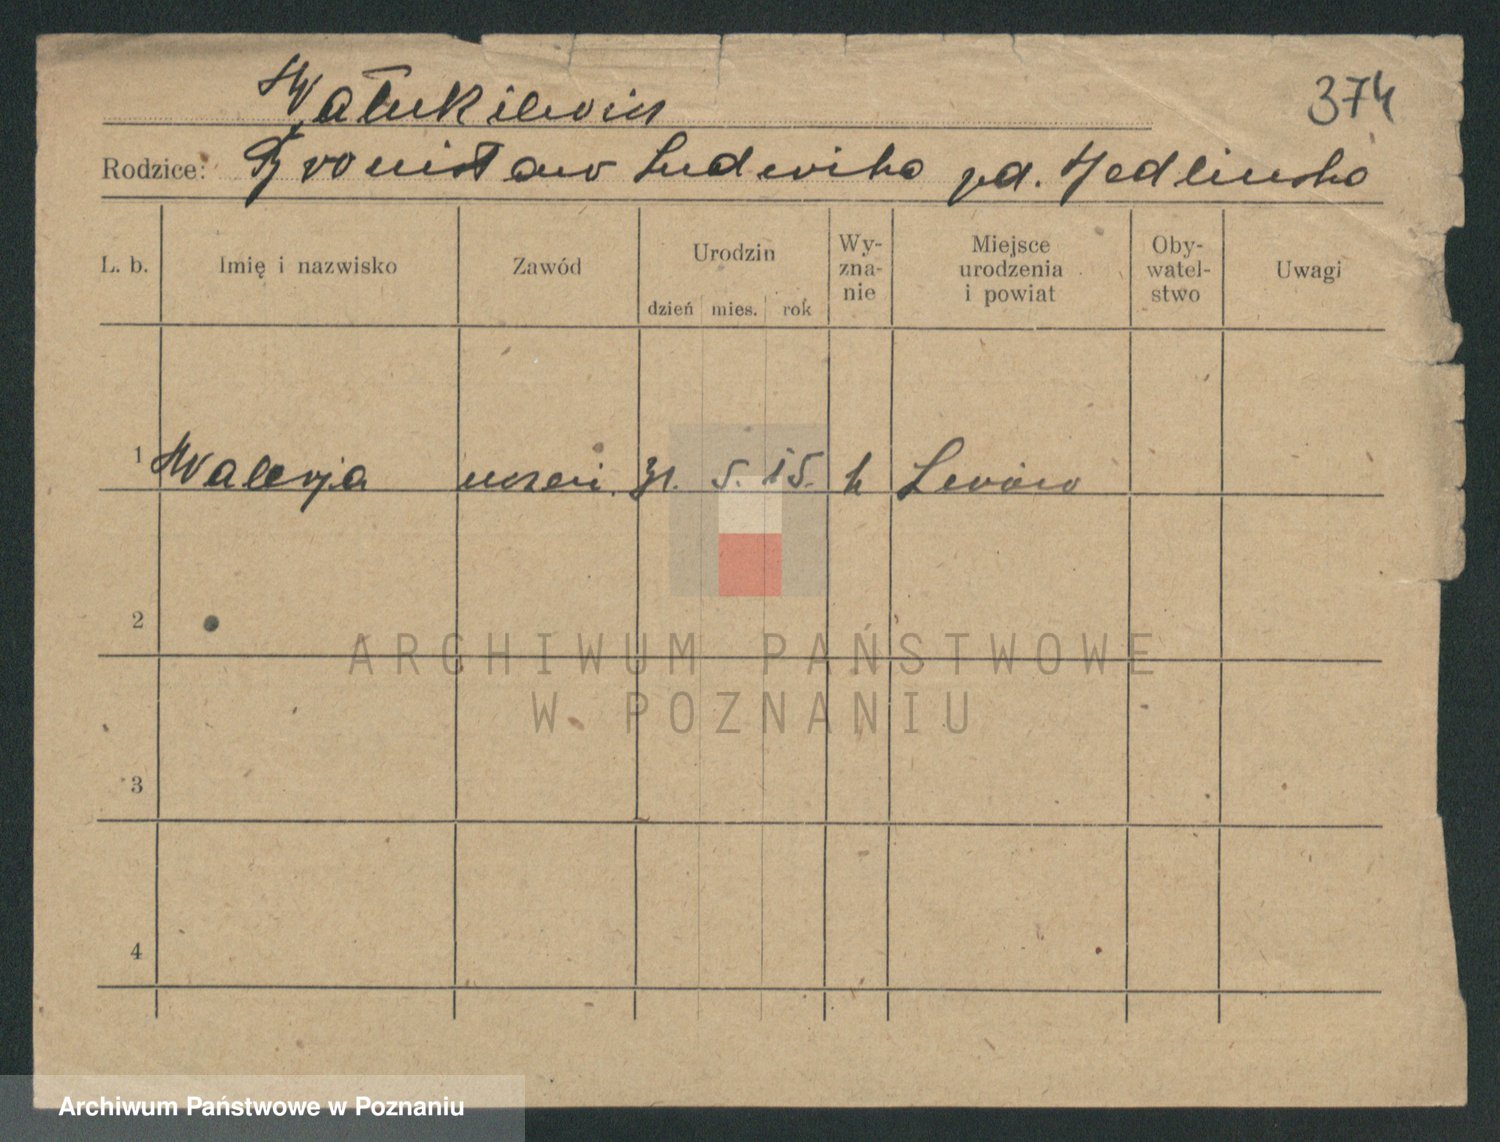 374
Wałukiewicz
Rodzice: Bronisław Ludwika zd. Jedlińska
L. b. Imię i nazwisko Zawód Urodzin dzień mies. rok Wy-zna-nie Miejsce urodzenia i powiat Oby-watel-stwo Uwagi
1 Walerja uczeń. 31. 5. 15. k Lwów
2
3
4
ARCHIWUM PAŃSTWOWE
W POZNANIU
Archiwum Państwowe w Poznaniu